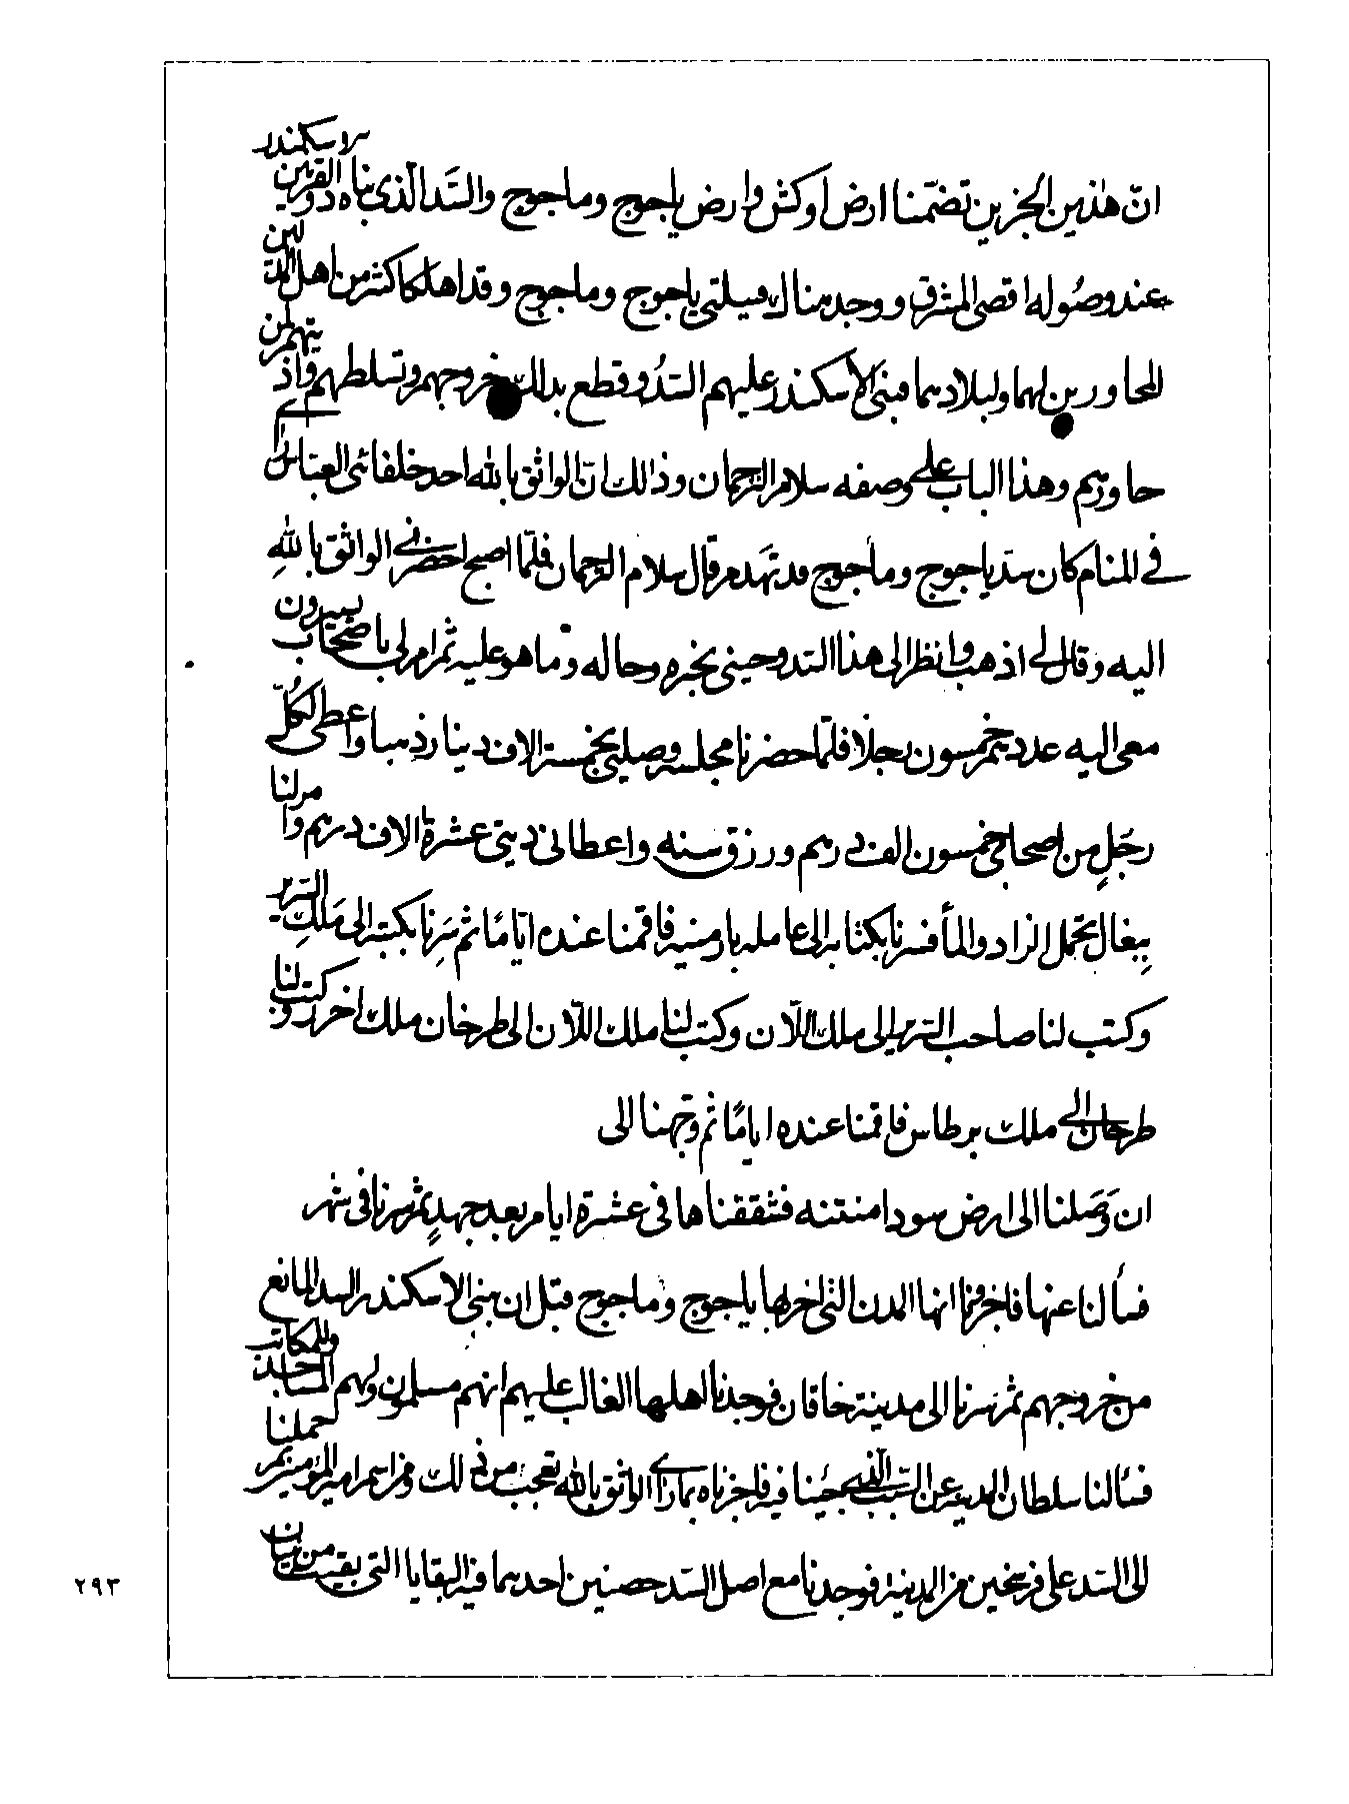 انّ هٰذين الجزين تضمّنا ارض اوكش وارض ياجوج وماجوج والسَّد الّذى بناه ذوالقرنين اسكندر
عند وصُوله اقصى المشرق ووجد هنالك قبيلتى ياجوج وماجوج وقد اهلكا كثير من اهل
المجاورين لهما ولبلادهما فبنى الاسكندر عليهم السدُ وقطع بذالك خروجهم وتسلطهم واذيتهم لمن
جاورهم وهذا الباب على وصفه سلام الترجمان وذالك انّ الواثق بالله احد خلفائى العباس راى
فى المنام كان سدّ ياجوج وماجوج قد تهَدم قال سلام الترجمان فلمّا اصبح احضرنى الواثق باللهِ
اليه وقال لى اذهب وانظر الى هذا السد وجينى بخبره وحاله وما هو عليه ثم امر لى باصحاب يسيرون
معى اليه عددهم خمسون رجلًا فلمّا حضرنا مجلسه وصلنى بخمسة الاف دينار ذهبا واعطى لكُلّ
رجَلٍ من اصحابى خمسون الف درهم ورزق سنه واعطانى ديتى عشرة الاف درهم وامر لنا
بِبغال تحمل الزاد والمأ فسرنا بكتابه الى عامله بارمنيه فاقمنا عنده ايّامًا ثم سَرنا بكتبه الى مَلكِ السرير
وكتب لنا صاحب السرير الى ملك اللّان وكتب لنا ملك اللّان الى طرخان ملك اخزر وكتب لنا
طرخان الى ملك برطاس فاقمنا عنده ايامًا ثم وجّهنا الى
ان وَصَلنا الى ارض سودا منتنه فشققناها فى عشرة ايام بعد جهدٍ ثم سرنا فى شهر
فسأ لنا عنها فاخبرنا انها المدن التى اخربها ياجوج وماجوج قبل ان يبنى الاسكندر السد المانع
من خروجهم ثم سَرنا الى مدينة خاقان فوجدنا اهلها الغالب عليهم انهم مسلمون ولهم المساجد والمكاتب
فسئالنا سلطان المدينه عن السّبب الّذى جيئنا فيه فاخبرناه بما راى الواثق بالله تعجب من ذلك ومراسم امير المؤمنين ثم حملنا
الى السد على فرسخين من المدينة فوجدنا مع اصل السّد حصنين احدهما فيه البقايا التى بقيت من بنيان
٢٩٣